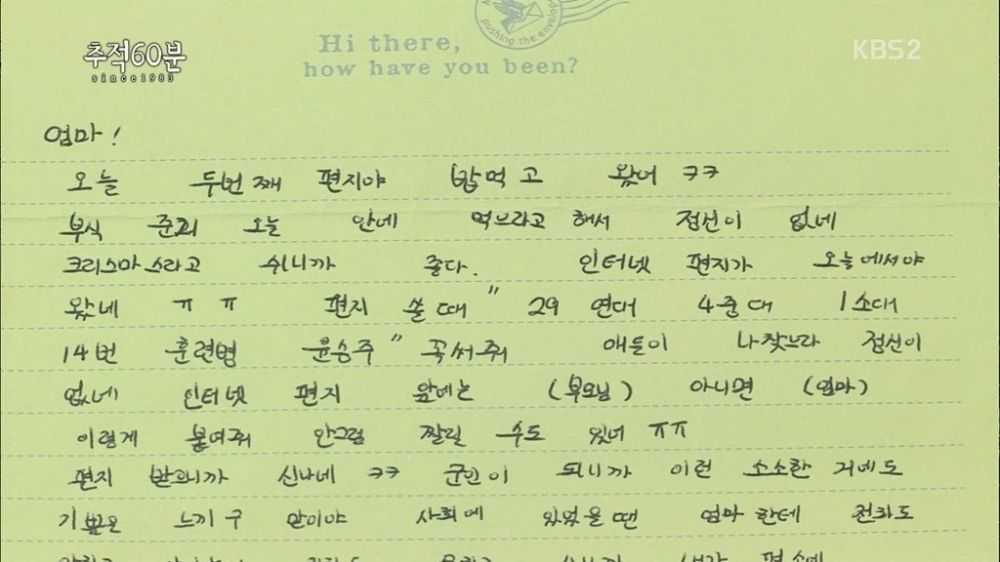 추적60분
since1983
KBS2
pushing the envelope
Hi there,
how have you been?
엄마!
오늘 두번째 편지야 밥먹고 왔어 ㅋㅋ
부식 오늘 안에 먹으라고 해서 정신이 없네
크리스마스라고 쉬니까 좋다. 인터넷 편지가 오늘에서야
왔네 ㅠㅠ 편지 쓸때 " 29 연대 4중대 1소대
14번 훈련병 윤승주" 꼭써줘 애들이 나찾느라 정신이
없네 인터넷 편지 앞에는 (부모님) 아니면 (엄마)
이렇게 붙여줘 안그럼 짤릴 수도 있어 ㅠㅠ
편지 받으니까 신나네 ㅋㅋ 군인이 되니까 이런 소소한 거에도
기쁨을 느끼구 말이야 사회에 있었을땐 엄마한테 전화도